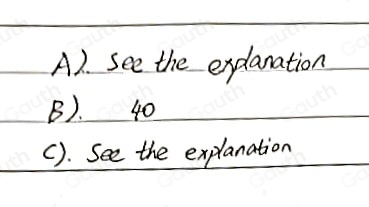 A). See the explanation
B). 40
C). See the explanation